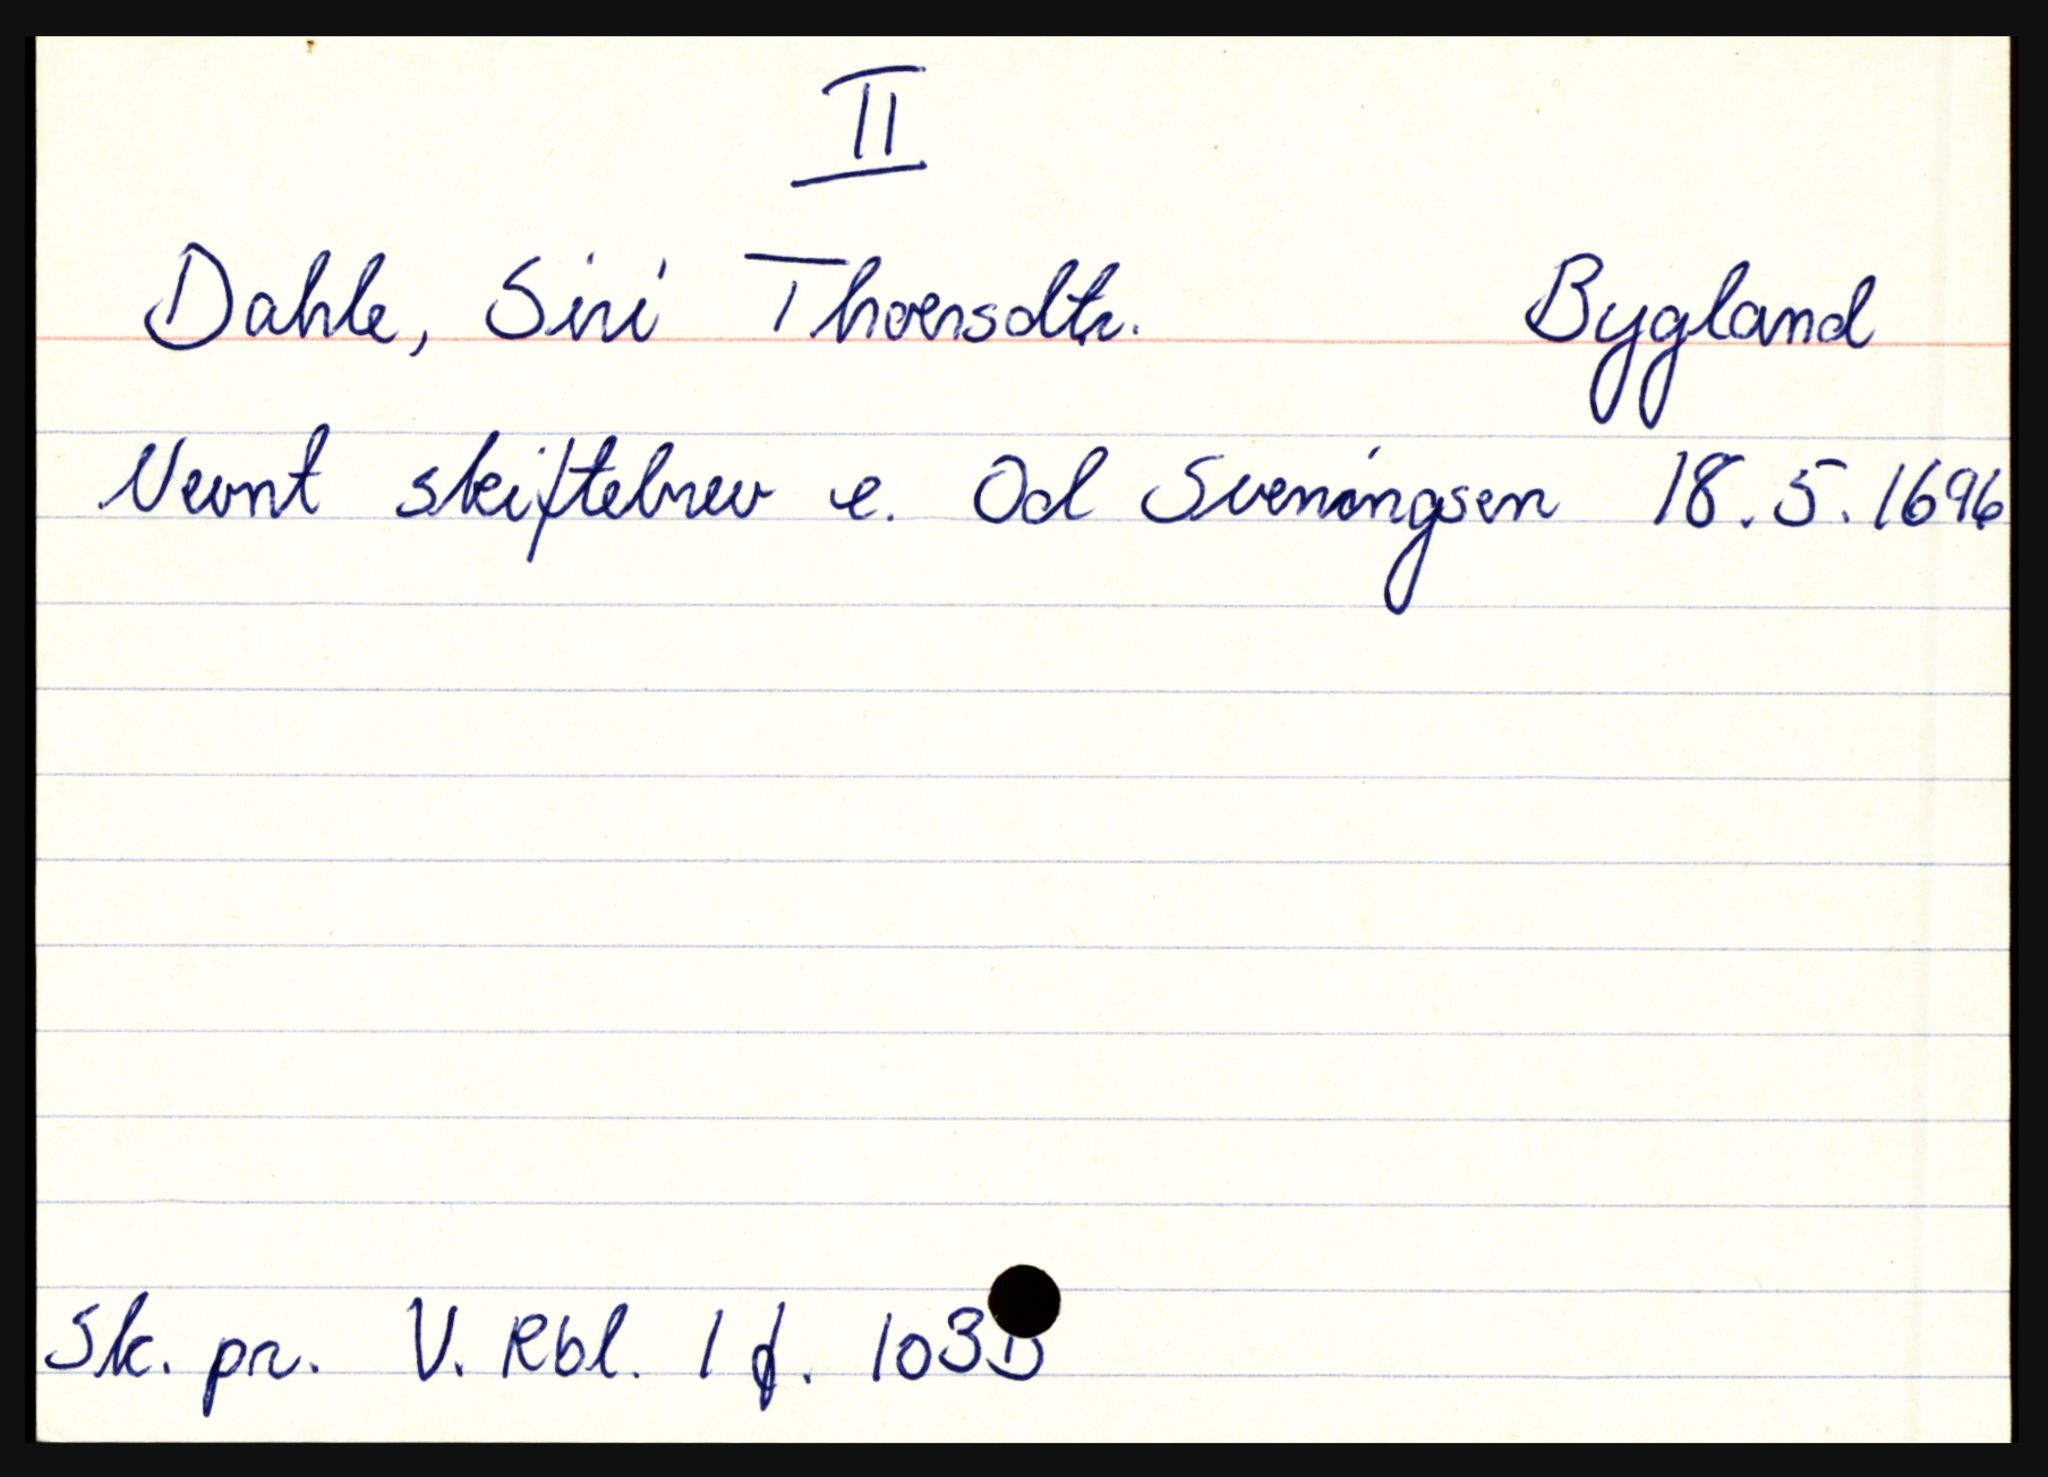 II
Dahle, Siri Thoersdtr. Bygland
Nevnt skiftebrev e. Od Sveningsen 18.5.1696
Sk. pr. V. Rbl. 1 f. 103b